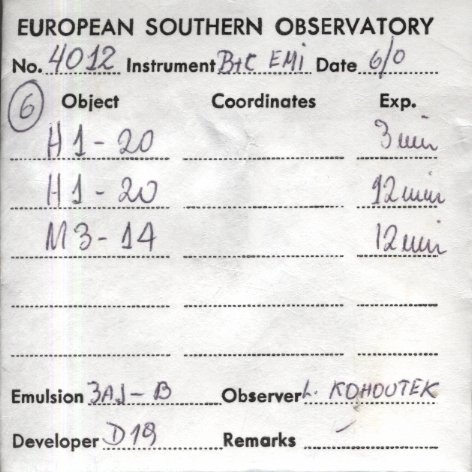 EUROPEAN SOUTHERN OBSERVATORY
No. 4012 Instrument B+C EMI Date 6/0
6 Object Coordinates Exp.
H1-20 3 min
H1-20 12 min
M3-14 12 min
Emulsion 3AJ-B Observer L. KOHOUTEK
Developer D19 Remarks -